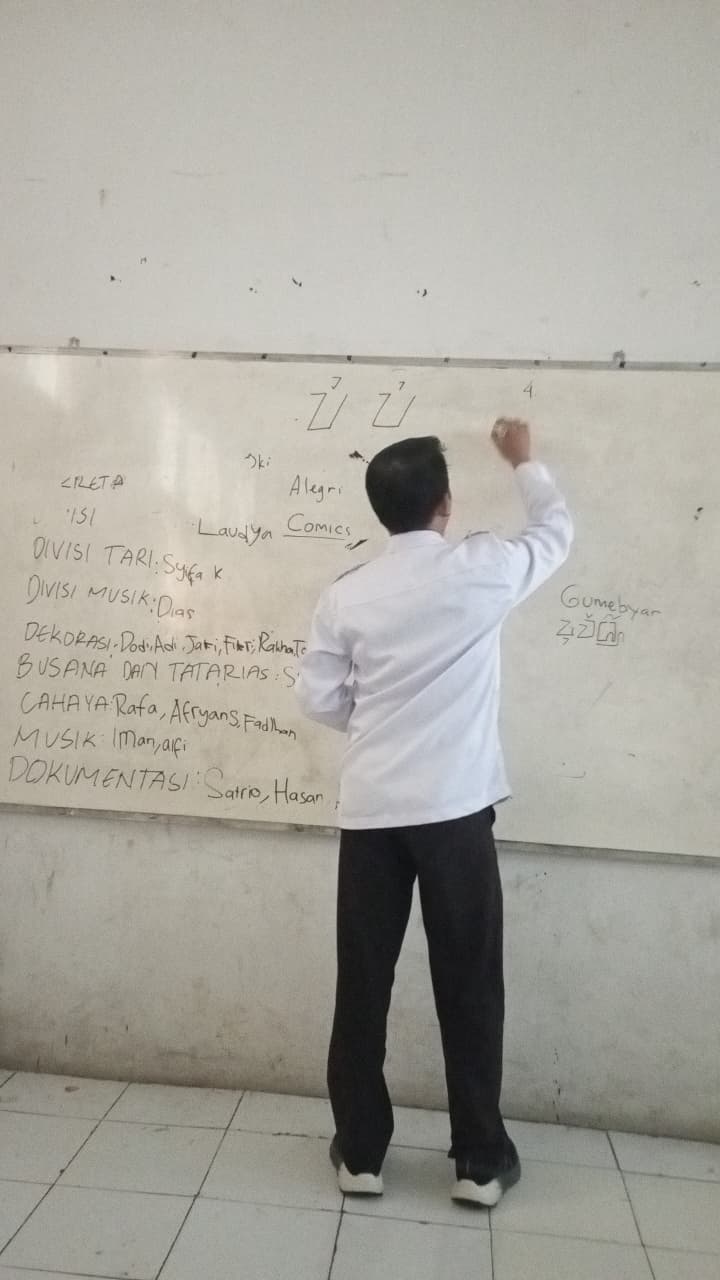 4
Alegri
Laudya Comics
DIVISI TARI: Syifa K
DIVISI MUSIK: Dias
DEKORASI: Dodi, Adi, Jaki, Fikri, Rakha,
BUSANA DAN TATARIAS: S
CAHAYA: Rafa, AfryanS, Fadlhan
MUSIK: Iman, alfi
DOKUMENTASI: Satrio, Hasan
Gumebyar